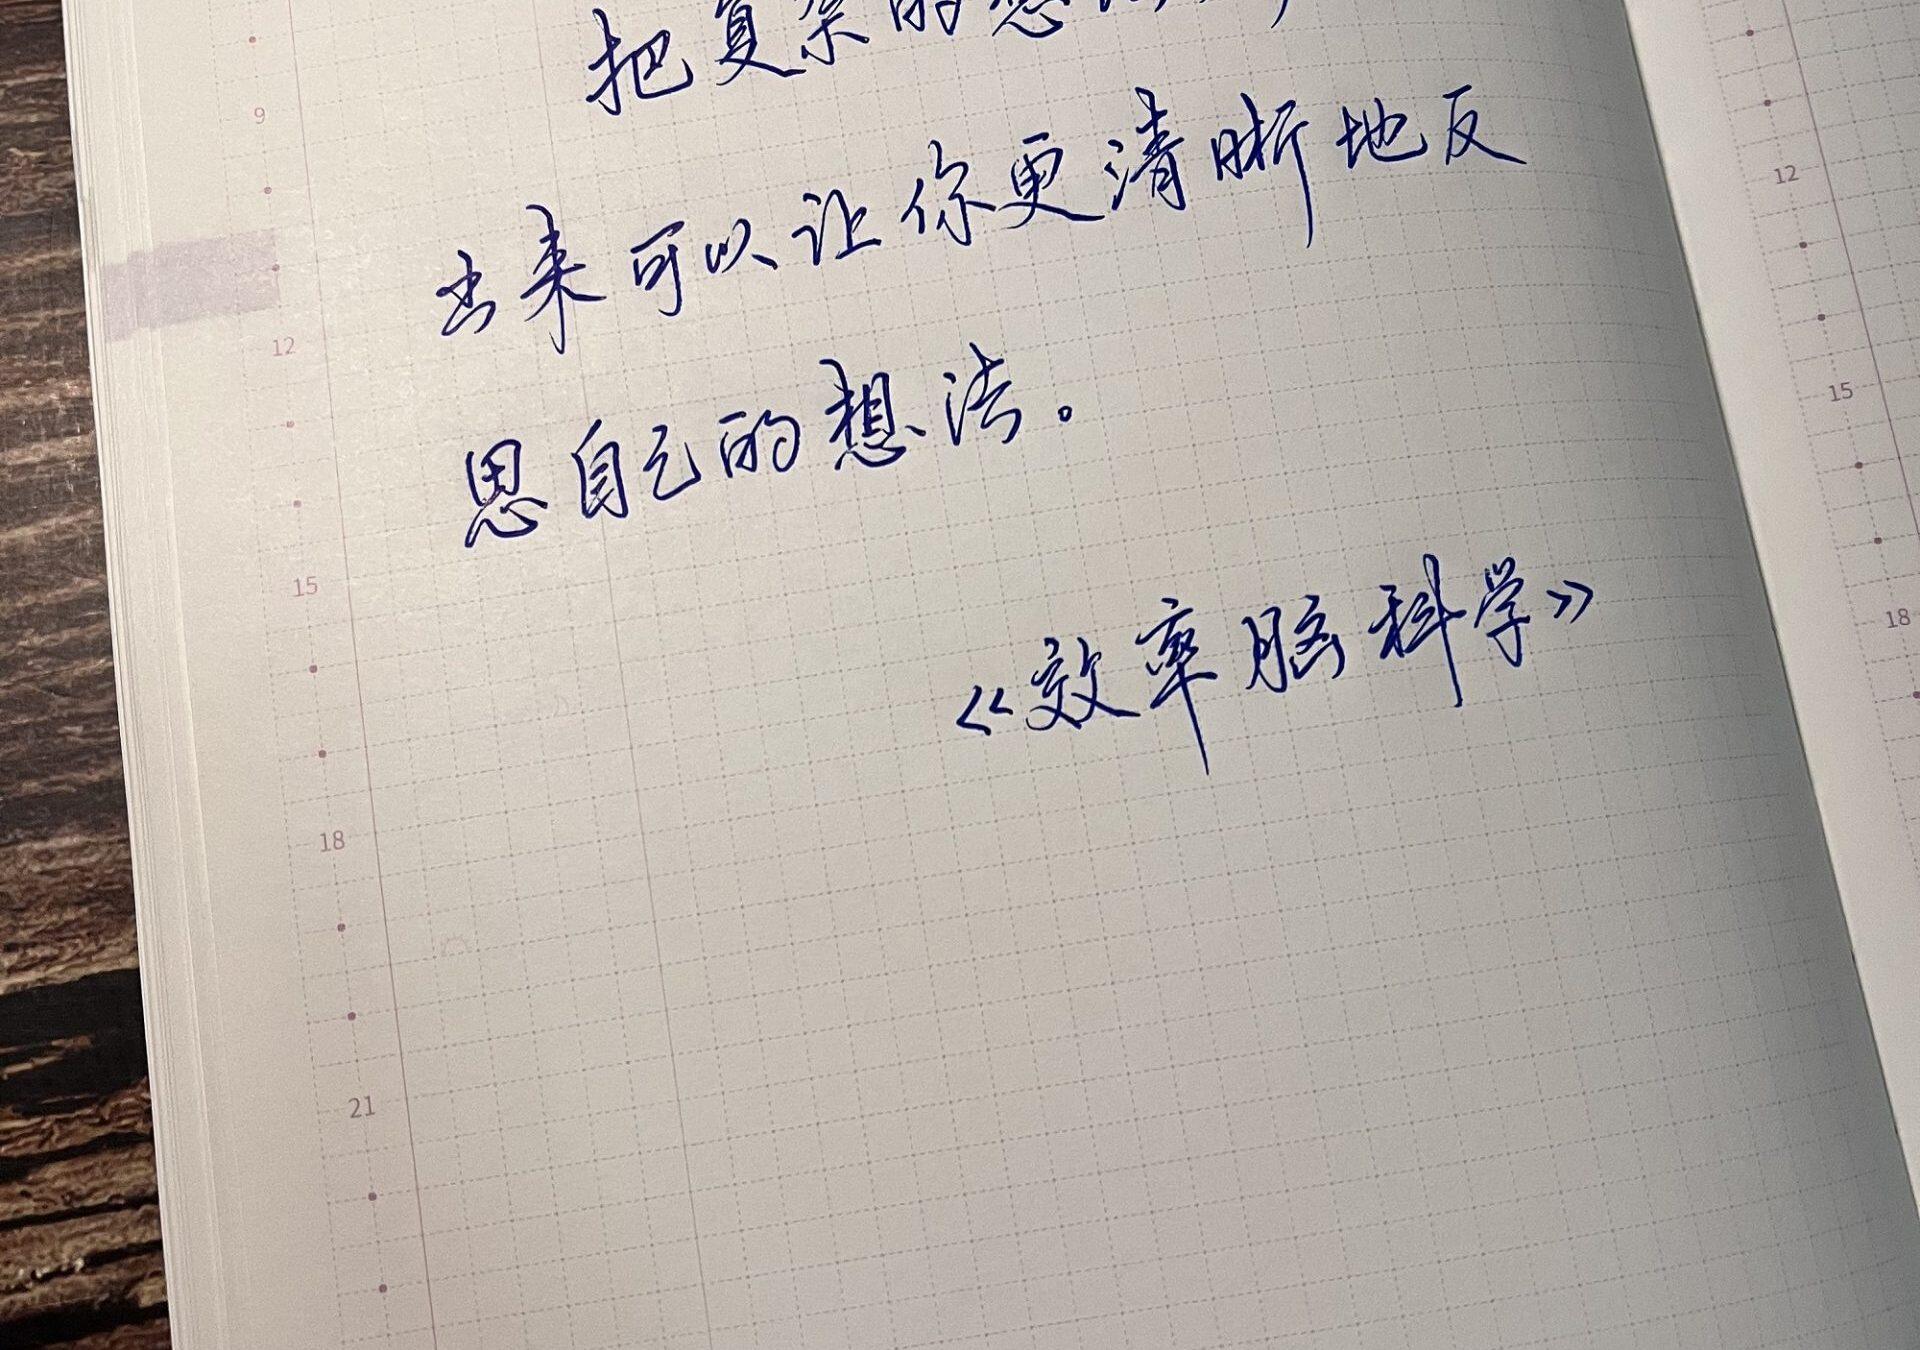 把复杂的想
出来可以让你更清晰地反
思自己的想法。
《效率脑科学》
9
12
15
18
21
12
15
18